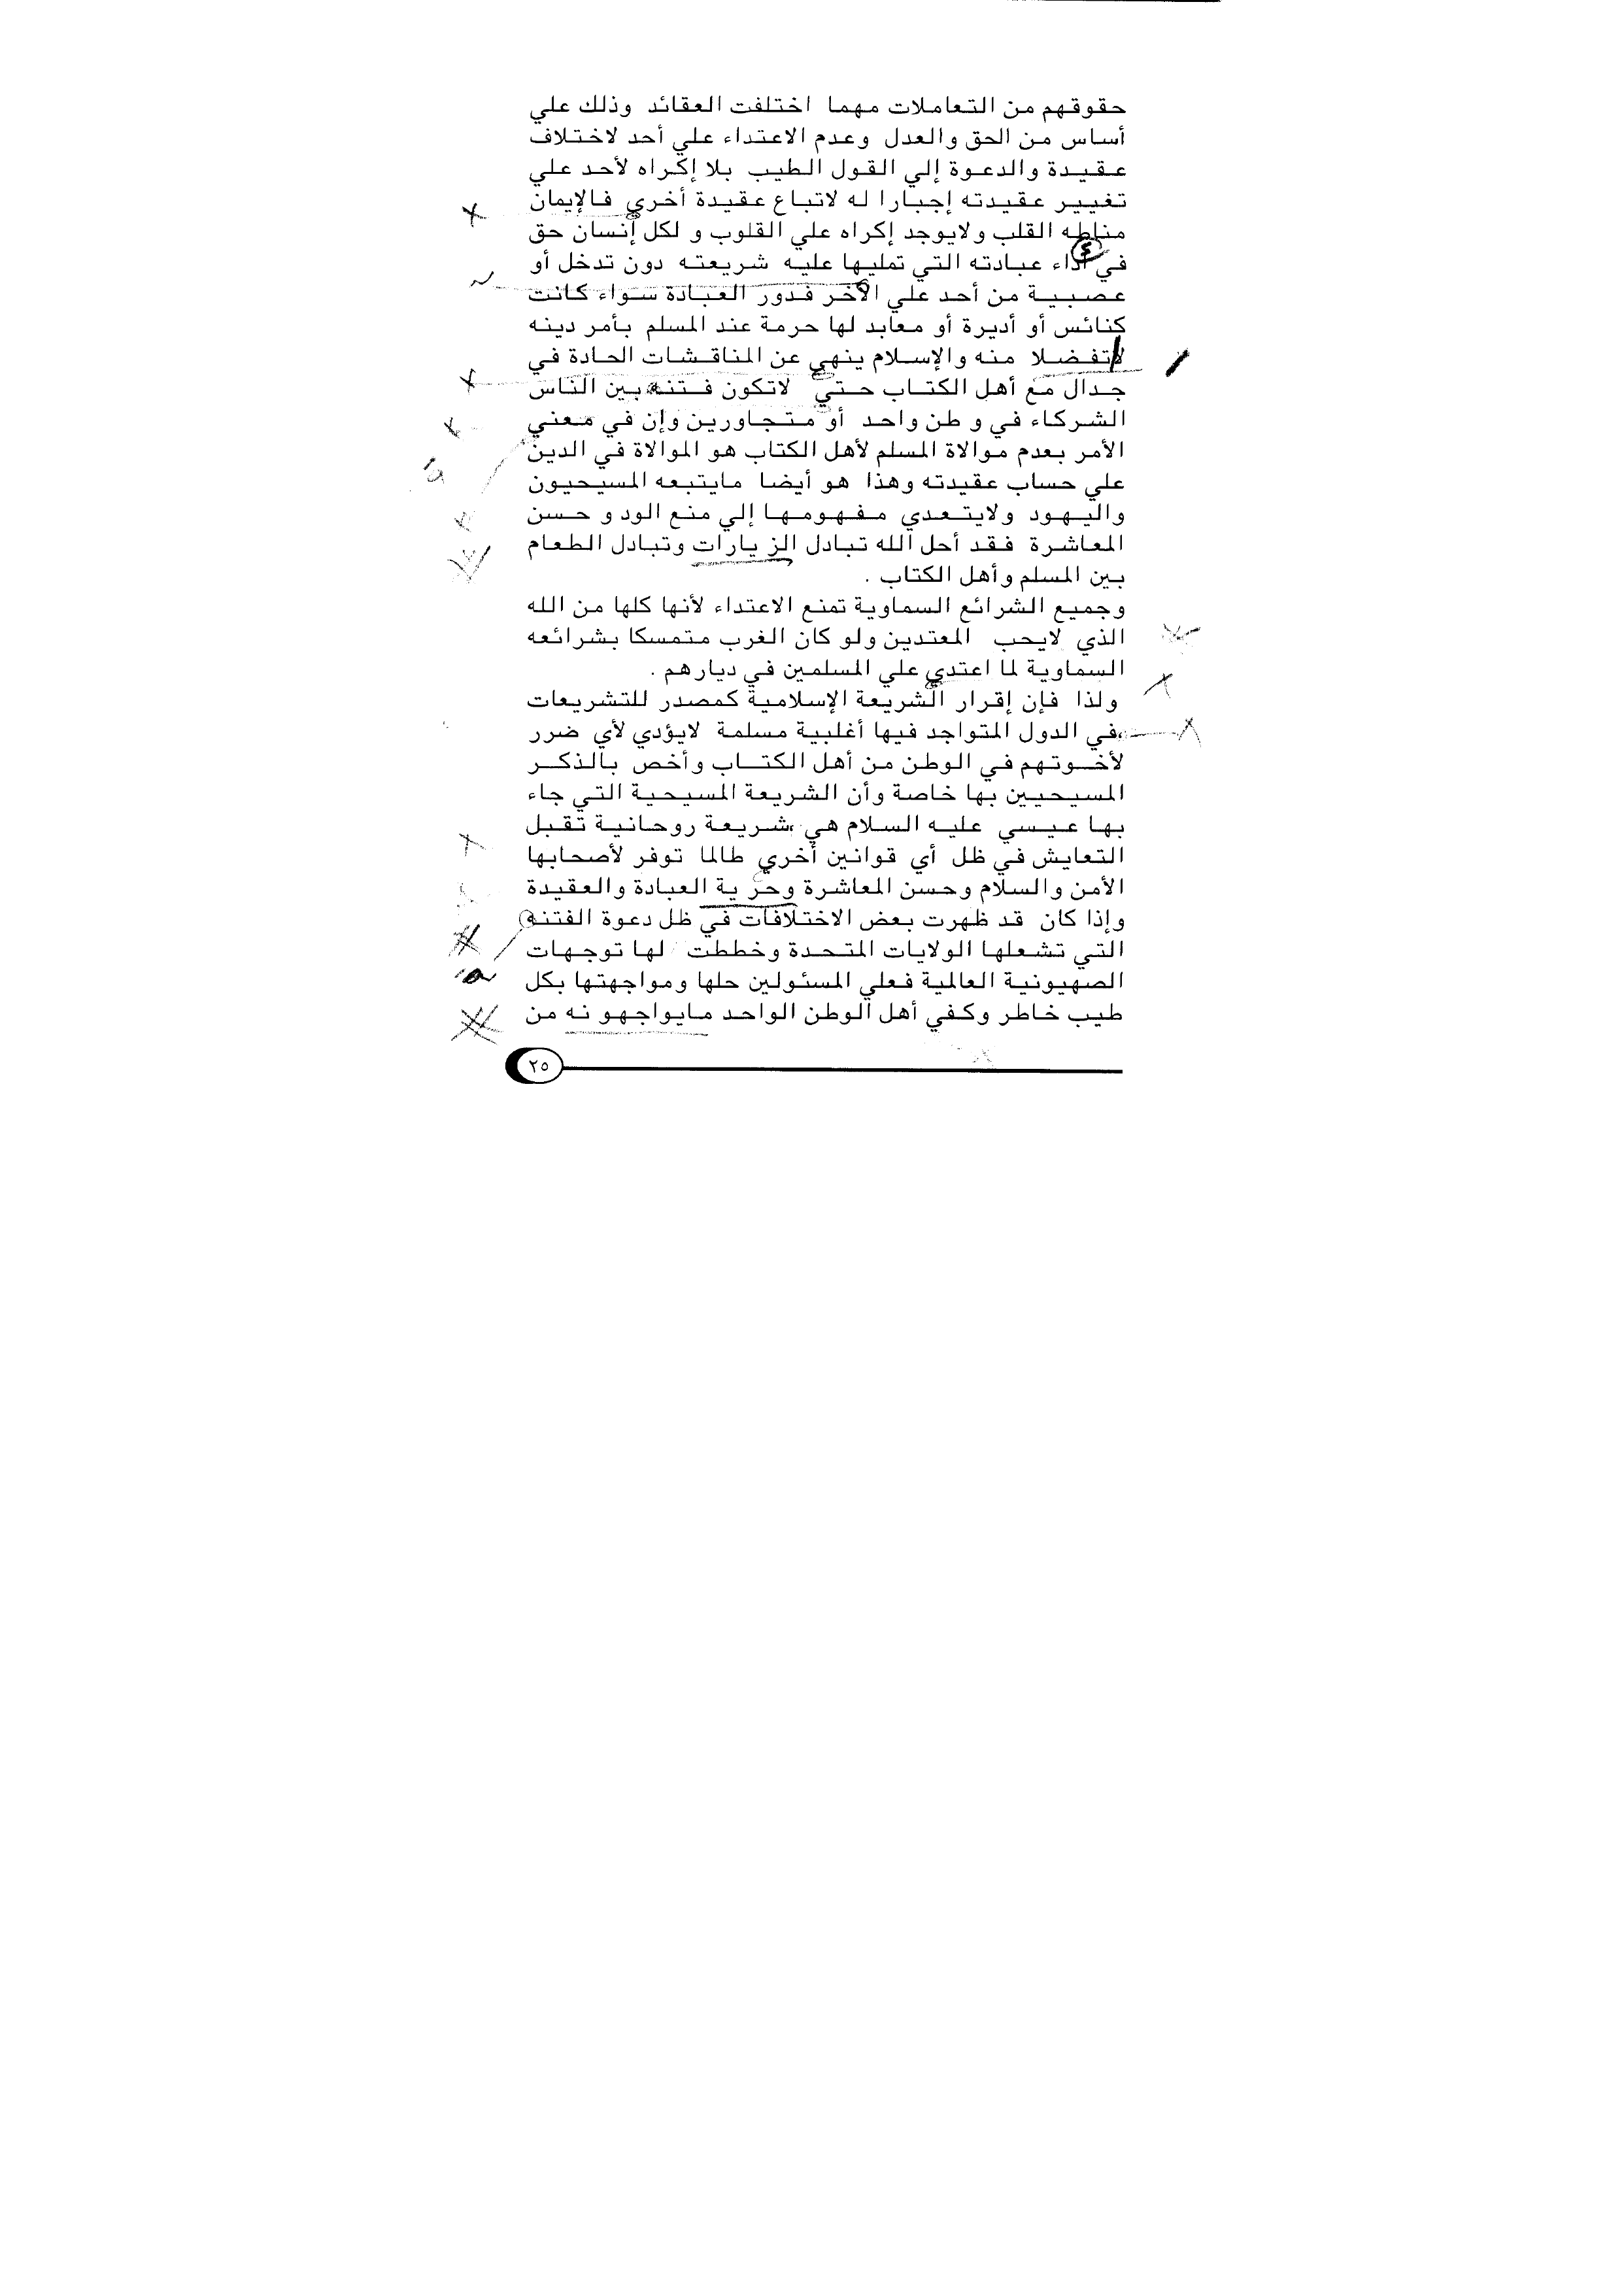 حقوقهم من التعاملات مهما اختلفت العقائد وذلك علي
أساس من الحق والعدل وعدم الاعتداء علي أحد لاختلاف
عقيدة والدعوة إلي القول الطيب بلا إكراه لأحد علي
تغيير عقيدته إجبارا له لاتباع عقيدة أخري فالإيمان
مناطه القلب ولايوجد إكراه علي القلوب و لكل إنسان حق
في أداء عبادته التي تمليها عليه شريعته دون تدخل أو
عصبية من أحد علي الآخر فدور العبادة سواء كانت
كنائس أو أديرة أو معابد لها حرمة عند المسلم بأمر دينه
لاتفضلا منه والإسلام ينهي عن المناقشات الحادة في
جدال مع أهل الكتاب حتي لاتكون فتنه بين الناس
الشركاء في و طن واحد أو متجاورين وإن في معني
الأمر بعدم موالاة المسلم لأهل الكتاب هو الموالاة في الدين
علي حساب عقيدته وهذا هو أيضا مايتبعه المسيحيون
واليهود ولايتعدي مفهومها إلي منع الود و حسن
المعاشرة فقد أحل الله تبادل الز يارات وتبادل الطعام
بين المسلم وأهل الكتاب .
وجميع الشرائع السماوية تمنع الاعتداء لأنها كلها من الله
الذي لايحب المعتدين ولو كان الغرب متمسكا بشرائعه
السماوية لما اعتدي علي المسلمين في ديارهم .
ولذا فإن إقرار الشريعة الإسلامية كمصدر للتشريعات
في الدول المتواجد فيها أغلبية مسلمة لايؤدي لأي ضرر
لأخوتهم في الوطن من أهل الكتاب وأخص بالذكر
المسيحيين بها خاصة وأن الشريعة المسيحية التي جاء
بها عيسي عليه السلام هي شريعة روحانية تقبل
التعايش في ظل أي قوانين أخري طالما توفر لأصحابها
الأمن والسلام وحسن المعاشرة وحر ية العبادة والعقيدة
وإذا كان قد ظهرت بعض الاختلافات في ظل دعوة الفتنه
التي تشعلها الولايات المتحدة وخططت لها توجهات
الصهيونية العالمية فعلي المسئولين حلها ومواجهتها بكل
طيب خاطر وكفي أهل الوطن الواحد مايواجهو نه من
٢٥